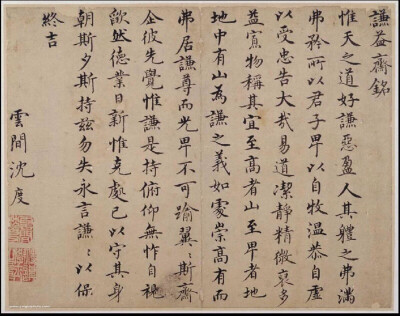 謙益齋銘
惟天之道好謙惡盈人其體之弗滿
弗矜所以君子卑以自牧溫恭自虛
以受忠告大哉易道潔靜精微裒多
益寡物稱其宜至高者山至卑者地
地中有山為謙之義如處崇高有而
弗居謙尊而光卑不可踰翼〻斯齋
企彼先覺惟謙是持俯仰無怍自視
欿然德業日新惟克處己以守其身
朝斯夕斯持茲勿失永言謙〻以保
終吉
雲間沈度